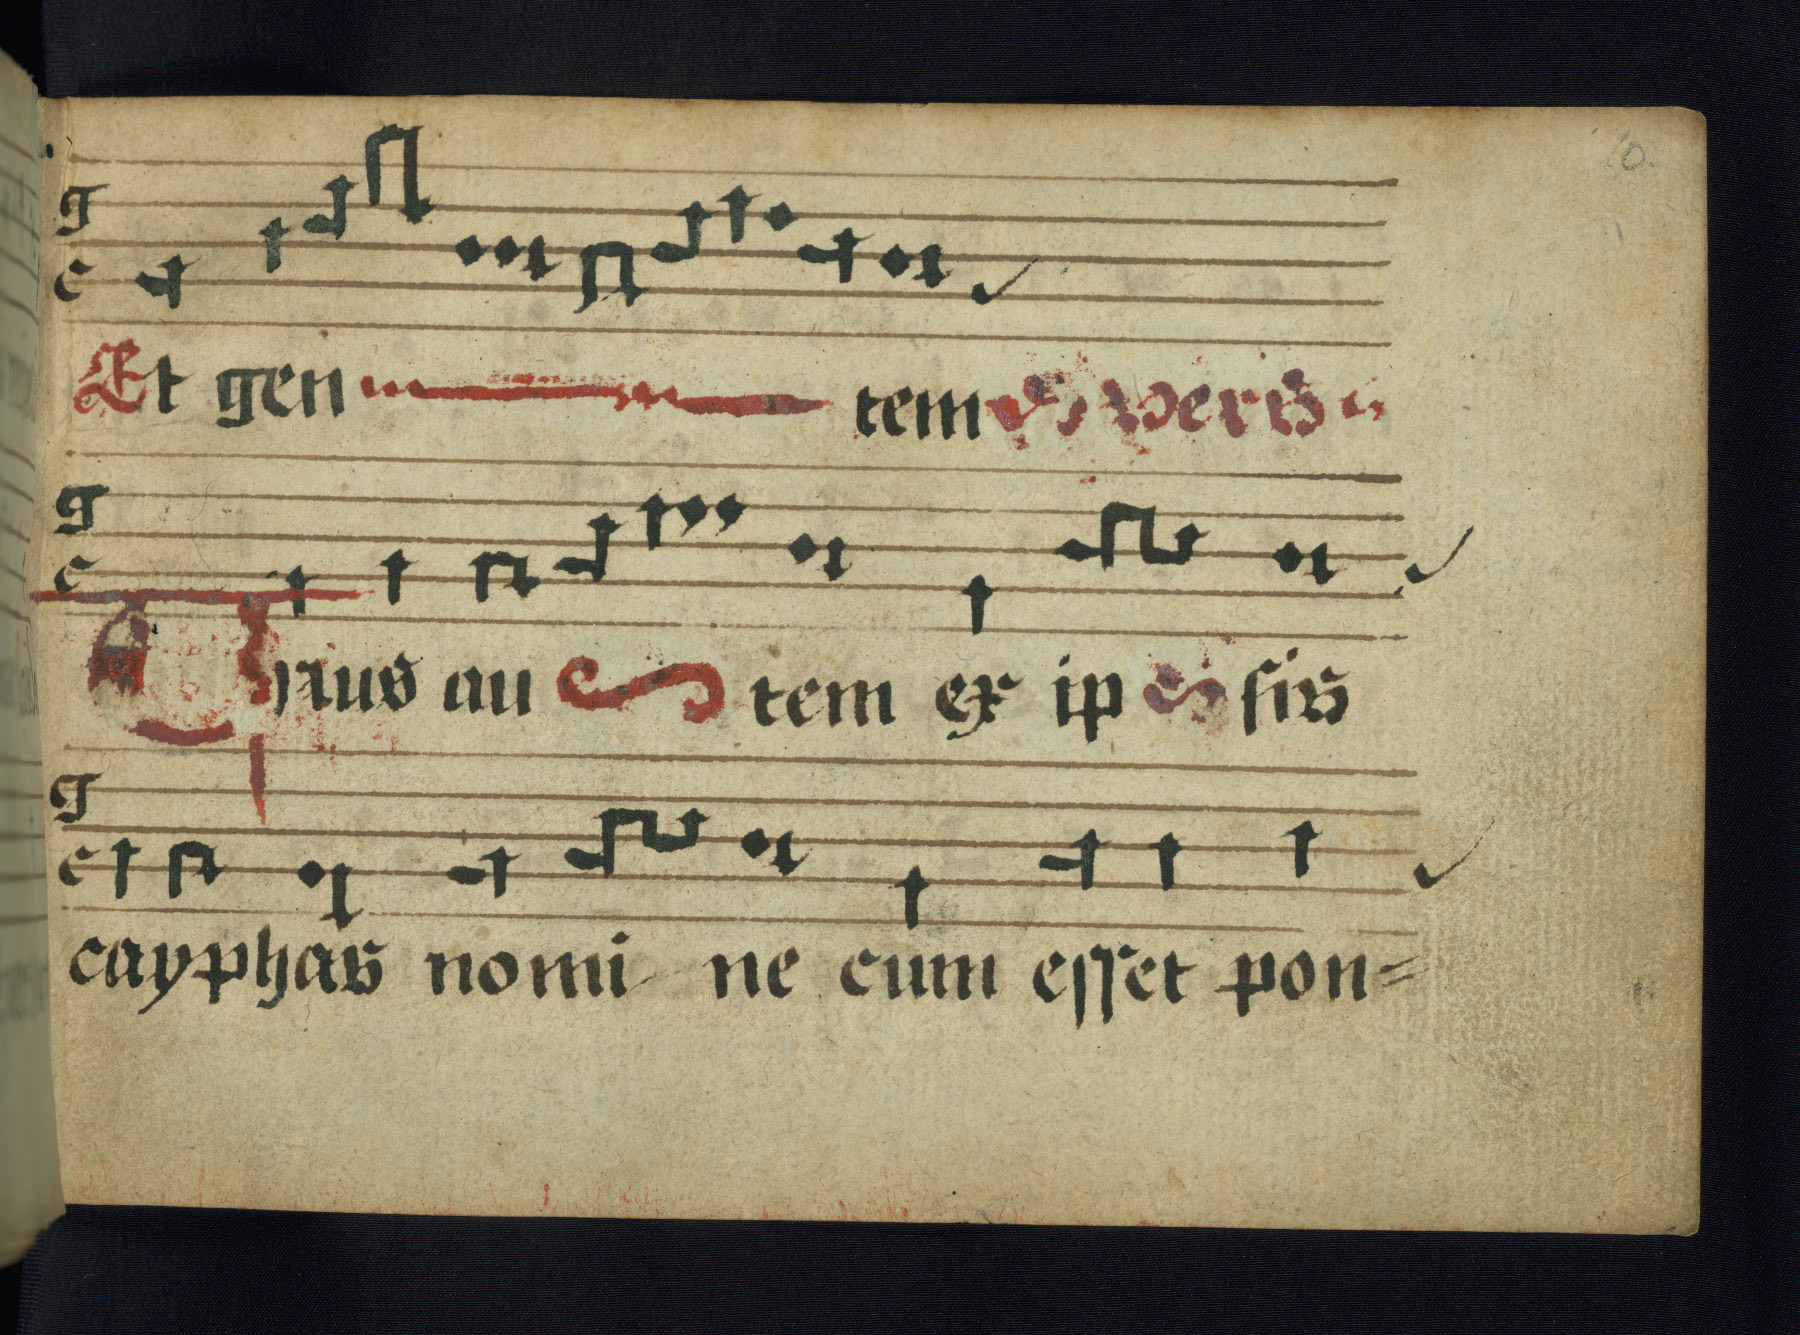 Et gen tem versus
Unus au tem ex ip sis
cayphas nomi ne cum esset pon=